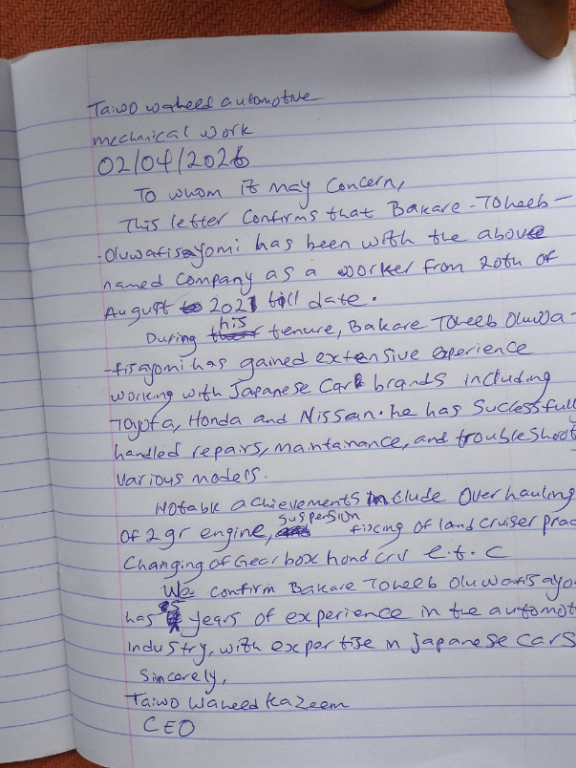 Taiwo waheed automotive
mechanical work
02/04/2026
To whom it may concern,
This letter confirms that Bakare - Toheeb -
- Oluwafisayomi has been with the above
named company as a worker from 20th of
August 2021 till date.
During his tenure, Bakare Toheeb Oluwa -
- fisayomi has gained extensive experience
working with Japanese Car brands including
Toyota, Honda and Nissan. he has Successfull
handled repairs, maintainance, and troubleshoot
various models.
Notable achievements include Overhauling
Of 2gr engine, suspension fixing of land cruiser prad
Changing of Gear box hond crv e.t.c
We confirm Bakare Toheeb Oluwafisayo
has years of experience in the automot
industry, with expertise in Japanese cars
Sincerely,
Taiwo Waheed Kazeem
CEO